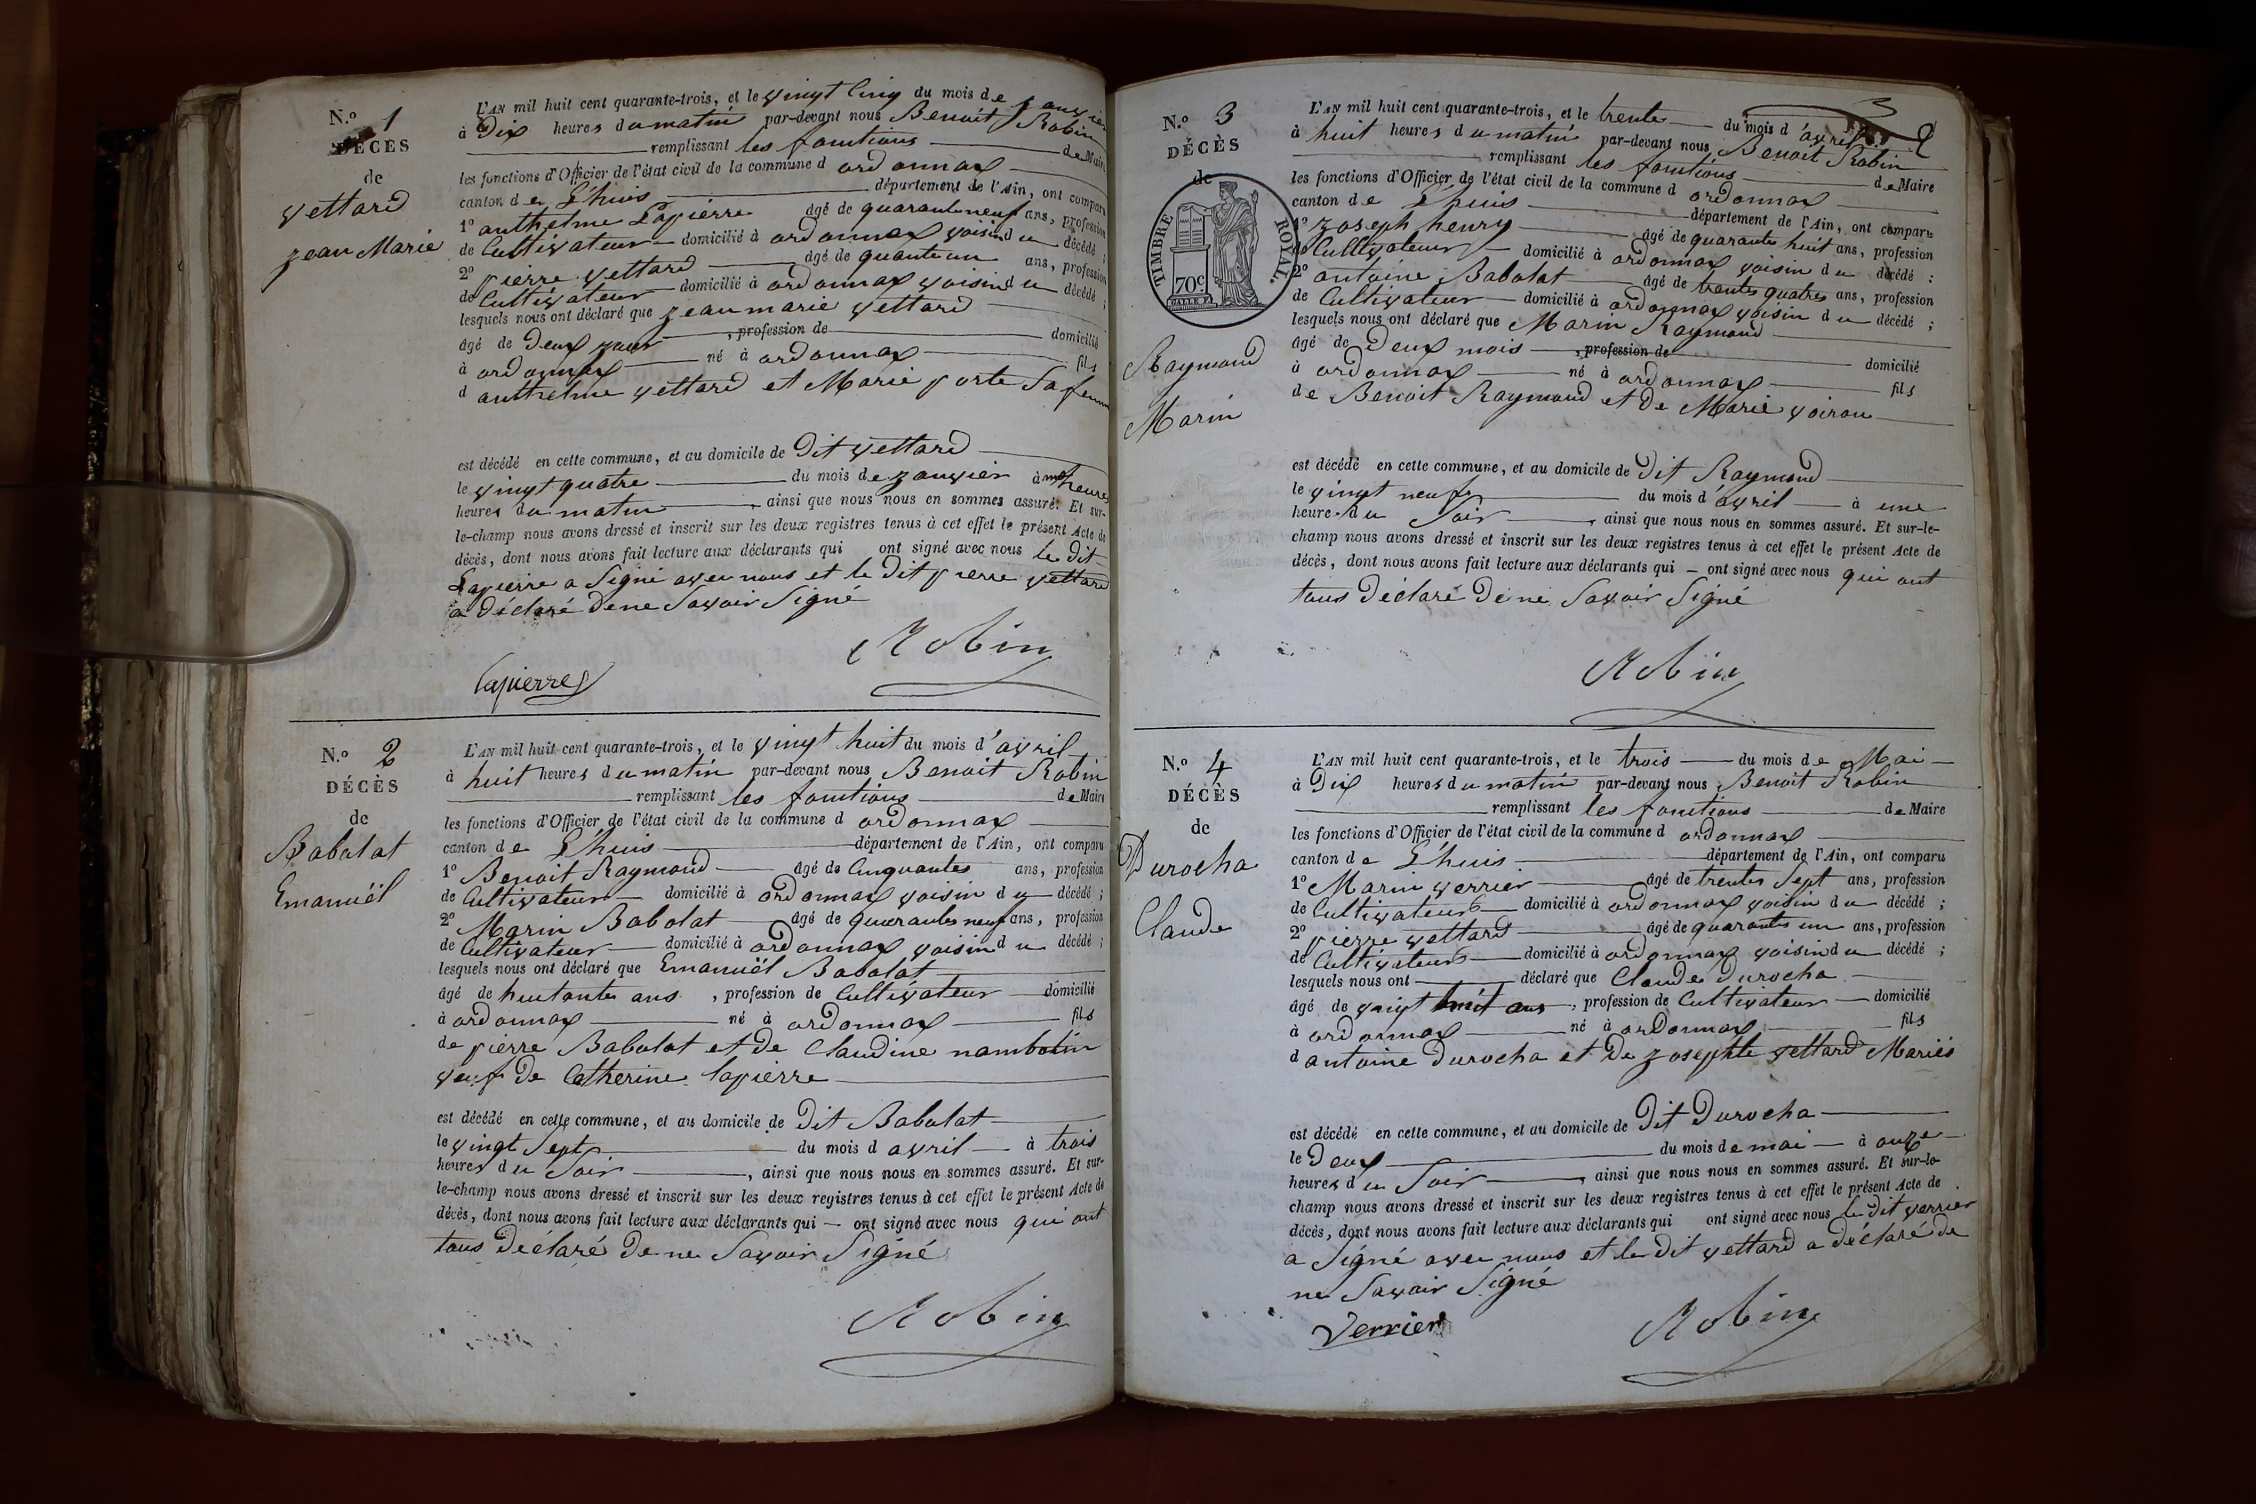 N.o 1
DÉCÈS
de
vettard
jean Marie
L'AN mil huit cent quarante-trois, et le vingt cinq du mois de janvier
à Dix heures du matin par-devant nous Benoit Robin
remplissant les fonctions de Maire
les fonctions d'Officier de l'état civil de la commune d ordonnax
canton de L'huis département de l'Ain, ont comparu
1o anthelme Lapierre âgé de quarante neuf ans, profession
de Cultivateur domicilié à ordonnax voisin du décédé ;
2o pierre vettard âgé de quarante un ans, profession
de Cultivateur domicilié à ordonnax voisin du décédé ;
lesquels nous ont déclaré que jean marie vettard
âgé de Deux jours , profession de domicilié
à ordonnax né à ordonnax fils
d anthelme vettard et Marie porte Sa femme
est décédé en cette commune, et au domicile de Dit vettard
le vingt quatre du mois de janvier à heures
heures du matin , ainsi que nous nous en sommes assuré. Et sur-
le-champ nous avons dressé et inscrit sur les deux registres tenus à cet effet le présent Acte de
décès, dont nous avons fait lecture aux déclarants qui ont signé avec nous le dit
Lapierre a Signé avec nous et le Dit pierre vettard
a déclaré De ne Savoir Signé
Robin
lapierre
N.o 2
DÉCÈS
de
Babolat
Emanuël
L'AN mil huit cent quarante-trois, et le vingt huit du mois d'avril
à huit heures du matin par-devant nous Benoit Robin
remplissant les fonctions de Maire
les fonctions d'Officier de l'état civil de la commune d ordonnax
canton de L'huis département de l'Ain, ont comparu
1o Benoit Raymond âgé de Cinquantes ans, profession
de Cultivateur domicilié à ordonnax voisin du décédé ;
2o Marin Babolat âgé de quarantes neuf ans, profession
de Cultivateur domicilié à ordonnax voisin du décédé ;
lesquels nous ont déclaré que Emanuël Babolat
âgé de huitantes ans , profession de Cultivateur domicilié
à ordonnax né à ordonnax fils
de pierre Babolat et de Claudine nambotin
veuf De Catherine lapierre
est décédé en cette commune, et au domicile de Dit Babolat
le vingt Sept du mois d avril à trois
heures du Soir , ainsi que nous nous en sommes assuré. Et sur-
le-champ nous avons dressé et inscrit sur les deux registres tenus à cet effet le présent Acte de
décès, dont nous avons fait lecture aux déclarants qui — ont signé avec nous qui ont
tous Déclaré De ne Savoir Signé
Robin
3
2
N.o 3
DÉCÈS
de
TIMBRE ROYAL.
70c
Raymond
Marin
L'AN mil huit cent quarante-trois, et le trente du mois d'avril
à huit heures du matin par-devant nous Benoit Robin
remplissant les fonctions de Maire
les fonctions d'Officier de l'état civil de la commune d ordonnax
canton de L'huis département de l'Ain, ont comparu
1o joseph henry âgé de quarante huit ans, profession
de Cultivateur domicilié à ordonnax voisin du décédé ;
2o antoine Babolat âgé de trentes quatres ans, profession
de Cultivateur domicilié à ordonnax voisin du décédé ;
lesquels nous ont déclaré que Marin Raymond
âgé de Deux mois , profession de domicilié
à ordonnax né à ordonnax fils
de Benoit Raymond et De Marie voiron
est décédé en cette commune, et au domicile de Dit Raymond
le vingt neuf du mois d'avril à une
heure du Soir , ainsi que nous nous en sommes assuré. Et sur-le-
champ nous avons dressé et inscrit sur les deux registres tenus à cet effet le présent Acte de
décès, dont nous avons fait lecture aux déclarants qui — ont signé avec nous qui ont
tous Déclaré De ne Savoir Signé
Robin
N.o 4
DÉCÈS
de
Durocha
Claude
L'AN mil huit cent quarante-trois, et le trois du mois de Mai
à Dix heures du matin par-devant nous Benoit Robin
remplissant les fonctions de Maire
les fonctions d'Officier de l'état civil de la commune d ordonnax
canton de L'huis département de l'Ain, ont comparu
1o Marin verrier âgé de trentes Sept ans, profession
de Cultivateurs domicilié à ordonnax voisin du décédé ;
2o pierre vettard âgé de quarantes un ans, profession
de Cultivateurs domicilié à ordonnax voisin du décédé ;
lesquels nous ont déclaré que Claude Durocha
âgé de vingt huit ans , profession de Cultivateur domicilié
à ordonnax né à ordonnax fils
d antoine Durocha et De josephte vettard Mariés
est décédé en cette commune, et au domicile de Dit Durocha
le Deux du mois de mai à onze
heures du Soir , ainsi que nous nous en sommes assuré. Et sur-le-
champ nous avons dressé et inscrit sur les deux registres tenus à cet effet le présent Acte de
décès, dont nous avons fait lecture aux déclarants qui ont signé avec nous le dit verrier
a Signé avec nous et le dit vettard a déclaré de
ne Savoir Signé
Verrier
Robin